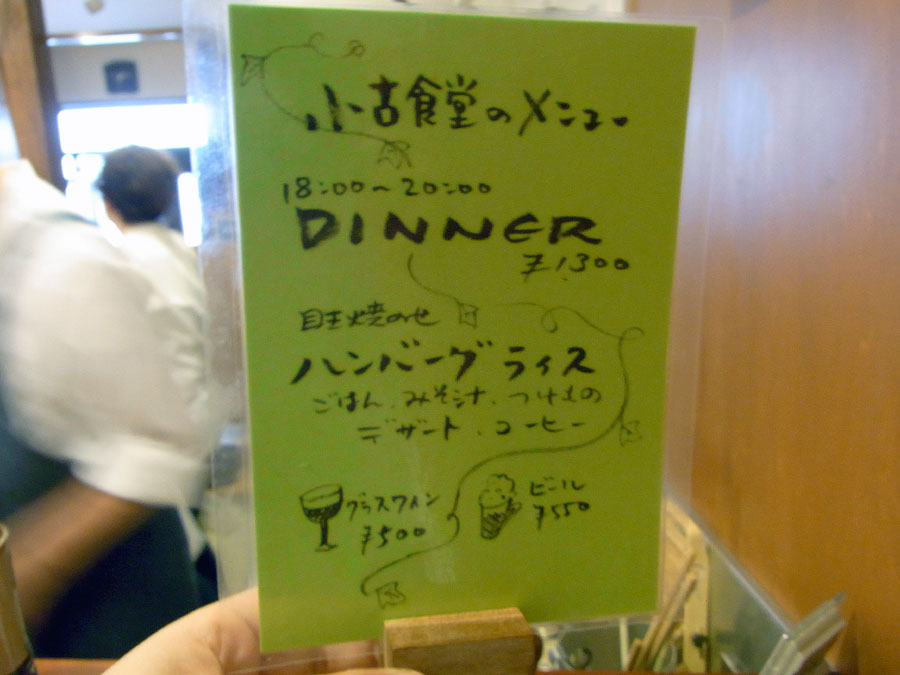 小古食堂のメニュー
18:00～20:00
DINNER
¥1300
目玉焼のせ
ハンバーグライス
ごはん、みそ汁、つけもの
デザート、コーヒー
グラスワイン
¥500
ビール
¥550